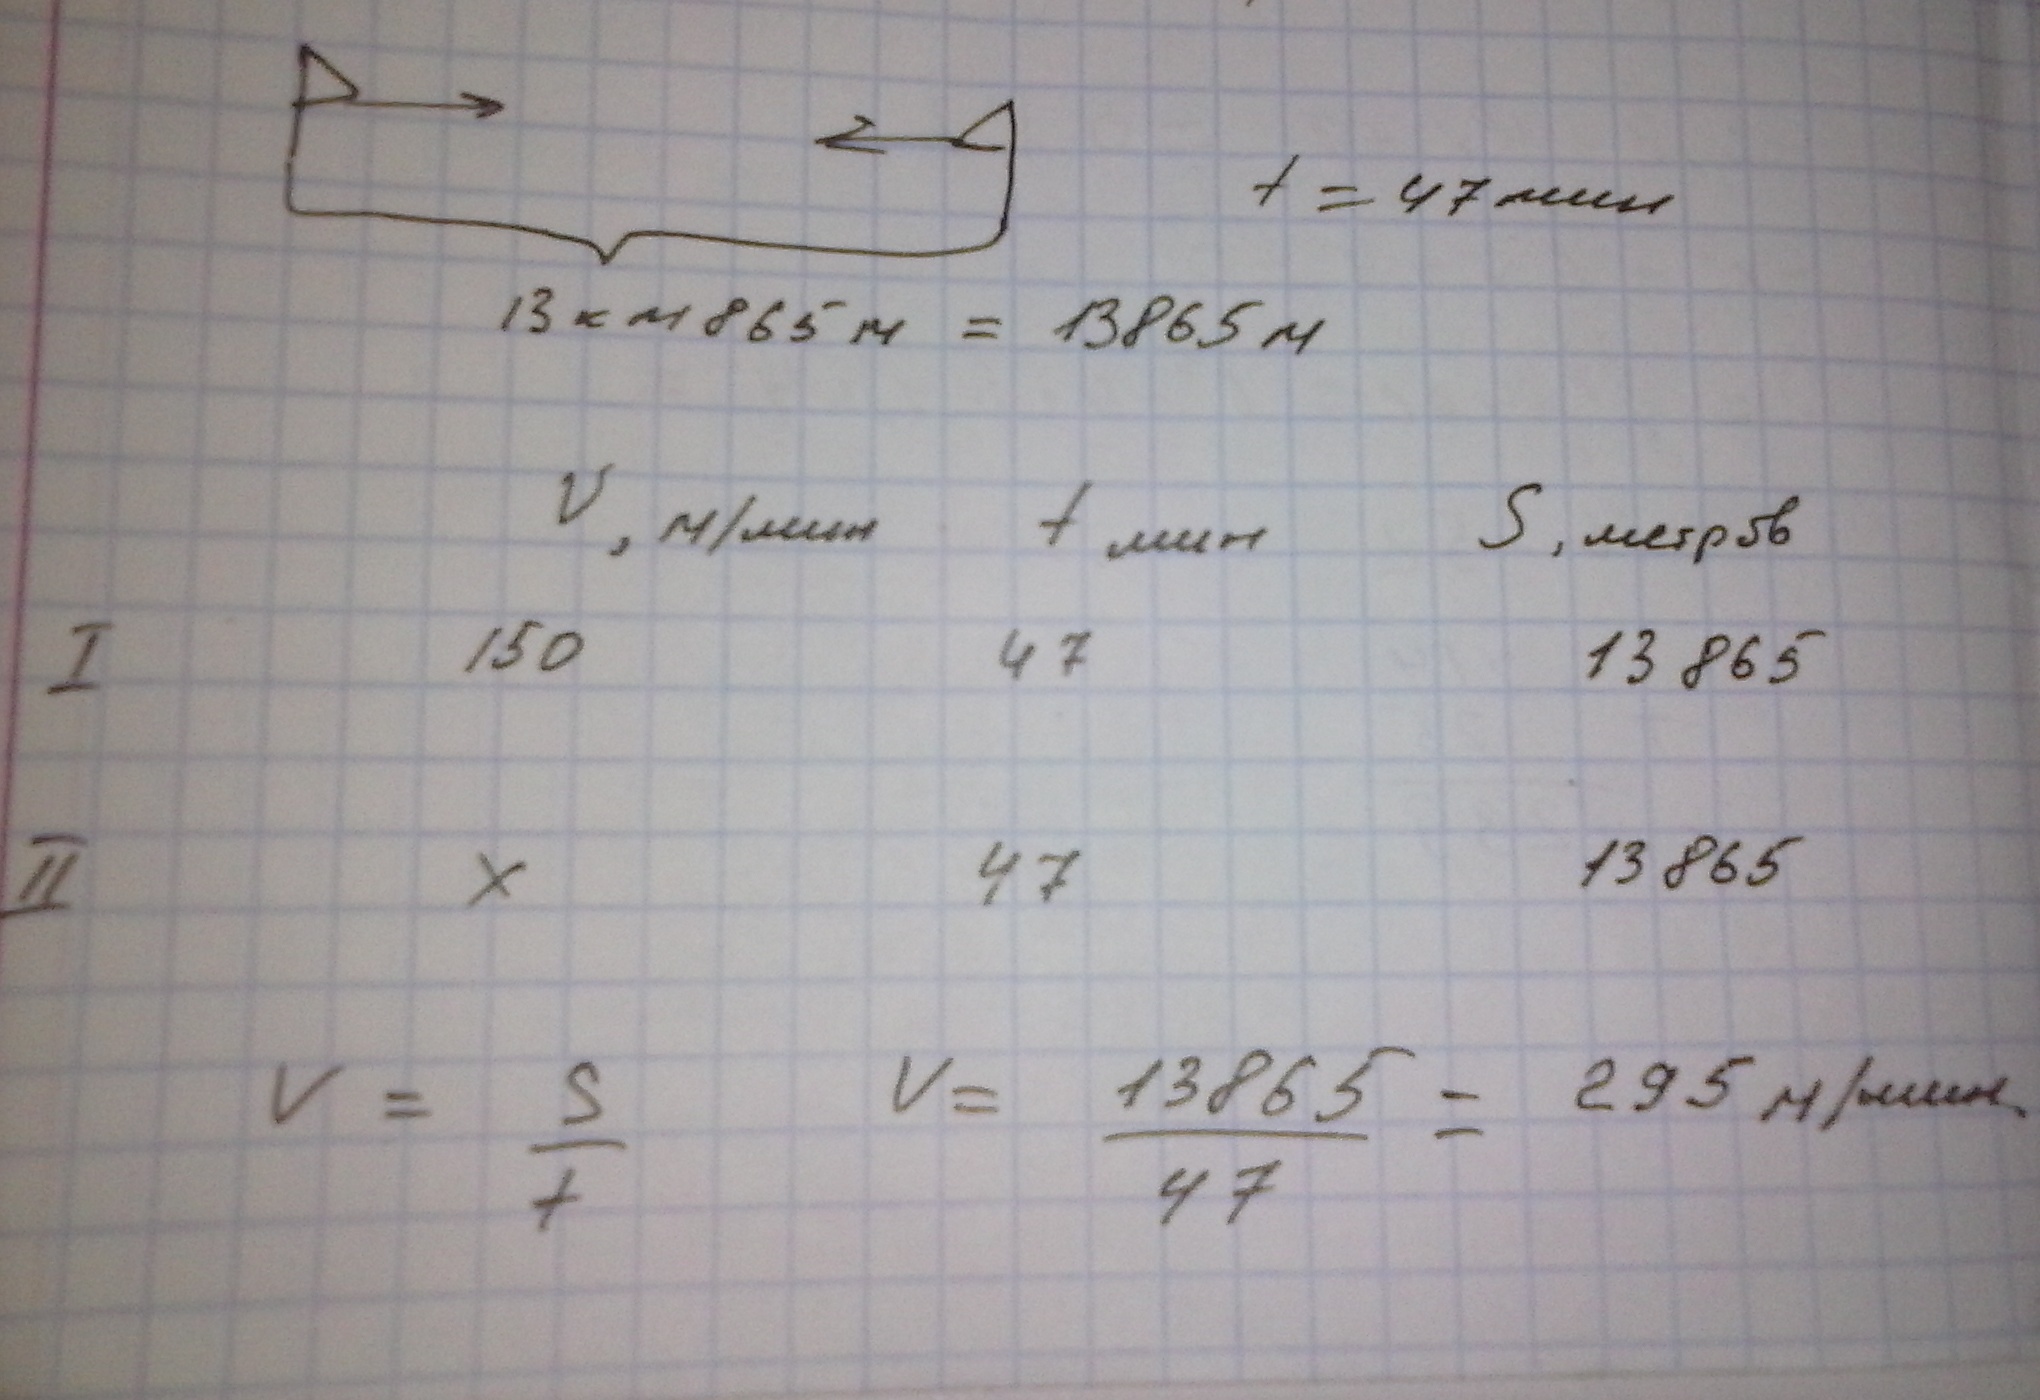 t = 47 мин
13 км 865 м = 13865 м
V, м/мин t мин S, метров
I 150 47 13 865
II x 47 13 865
V = S/t V = 13865/47 = 295 м/мин.